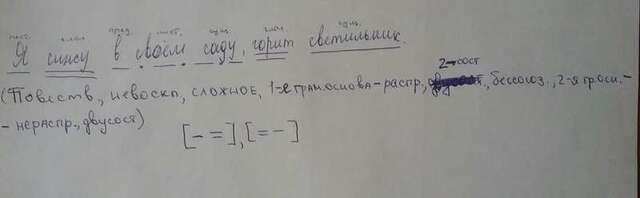 мест. глаг. пред. мест. сущ. глаг. сущ.
Я сижу в своём саду, горит светильник.
2-сост
(Повеств, невоскл, сложное, 1-я грам.основа-распр., бессоюз., 2-я гр.осн.-
- нераспр., двусост)
[- =], [= -]